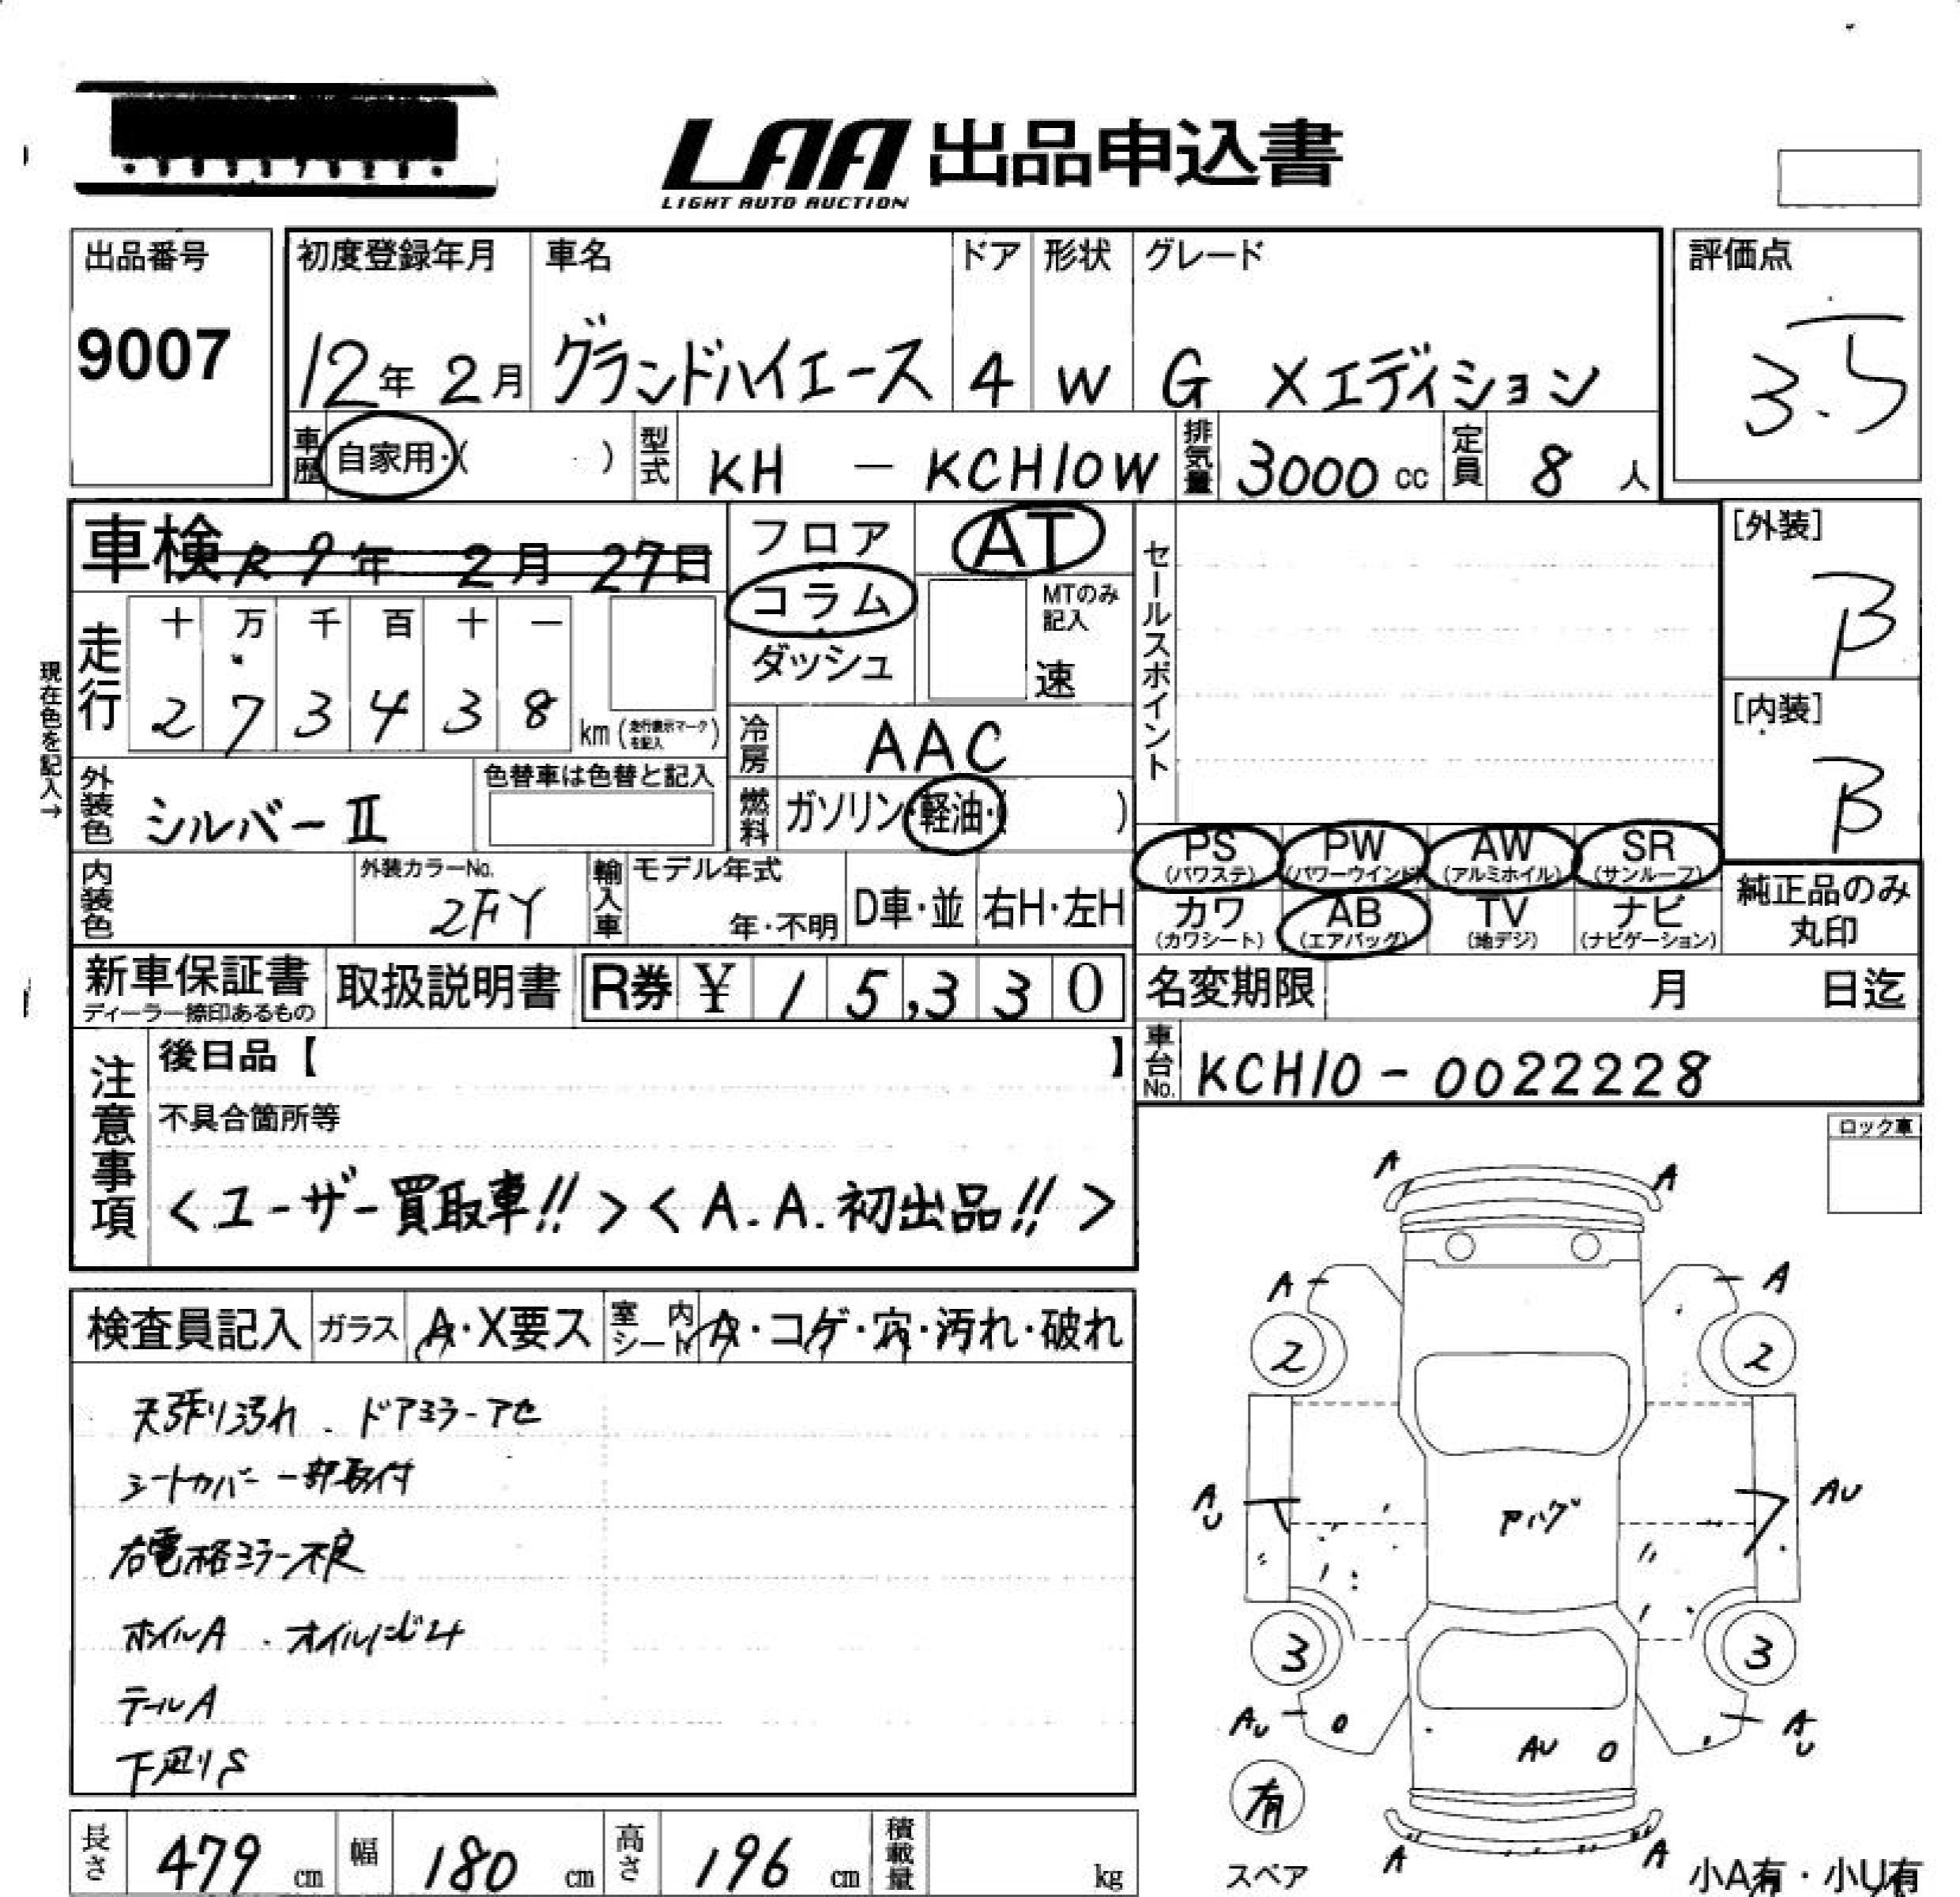 LAA 出品申込書
LIGHT AUTO AUCTION
出品番号
9007
初度登録年月
12年 2月
車名
グランドハイエース
ドア
4
形状
W
グレード
G Xエディション
評価点
3.5
車歴 自家用・( )
型式 KH - KCH10W
排気量 3000 cc
定員 8 人
車検 R9年 2月 27日
フロア
コラム
ダッシュ
AT
MTのみ
記入
速
セールスポイント
[外装]
B
[内装]
B
現在色を記入→
走行
十 万 千 百 十 一
2 7 3 4 3 8 km (走行表示マークを記入)
冷房 AAC
外装色 シルバーⅡ
色替車は色替と記入
燃料 ガソリン・軽油・( )
PS (パワステ)
PW (パワーウインド)
AW (アルミホイル)
SR (サンルーフ)
カワ (カワシート)
AB (エアバッグ)
TV (地デジ)
ナビ (ナビゲーション)
純正品のみ
丸印
内装色
外装カラーNo.
2FY
輸入車
モデル年式
年・不明
D車・並
右H・左H
新車保証書
ディーラー捺印あるもの
取扱説明書
R券 ¥ 15,330
名変期限 月 日迄
車台No. KCH10-0022228
注意事項
後日品【 】
不具合箇所等
<ユーザー買取車!!><A.A.初出品!!>
ロック車
検査員記入
ガラス A・X要ス
室内シート A・コゲ・穴・汚れ・破れ
天張り汚れ . ドアミラーアセ
シートカバー一部取付
右電格ミラー不良
ホイルA . オイルにじみ
テールA
下廻りS
A A
A A
2 2
AU AU
アハゲ
3 3
AU AU
AU
有
スペア
A A
小A有・小U有
長さ 479 cm
幅 180 cm
高さ 196 cm
積載量 kg